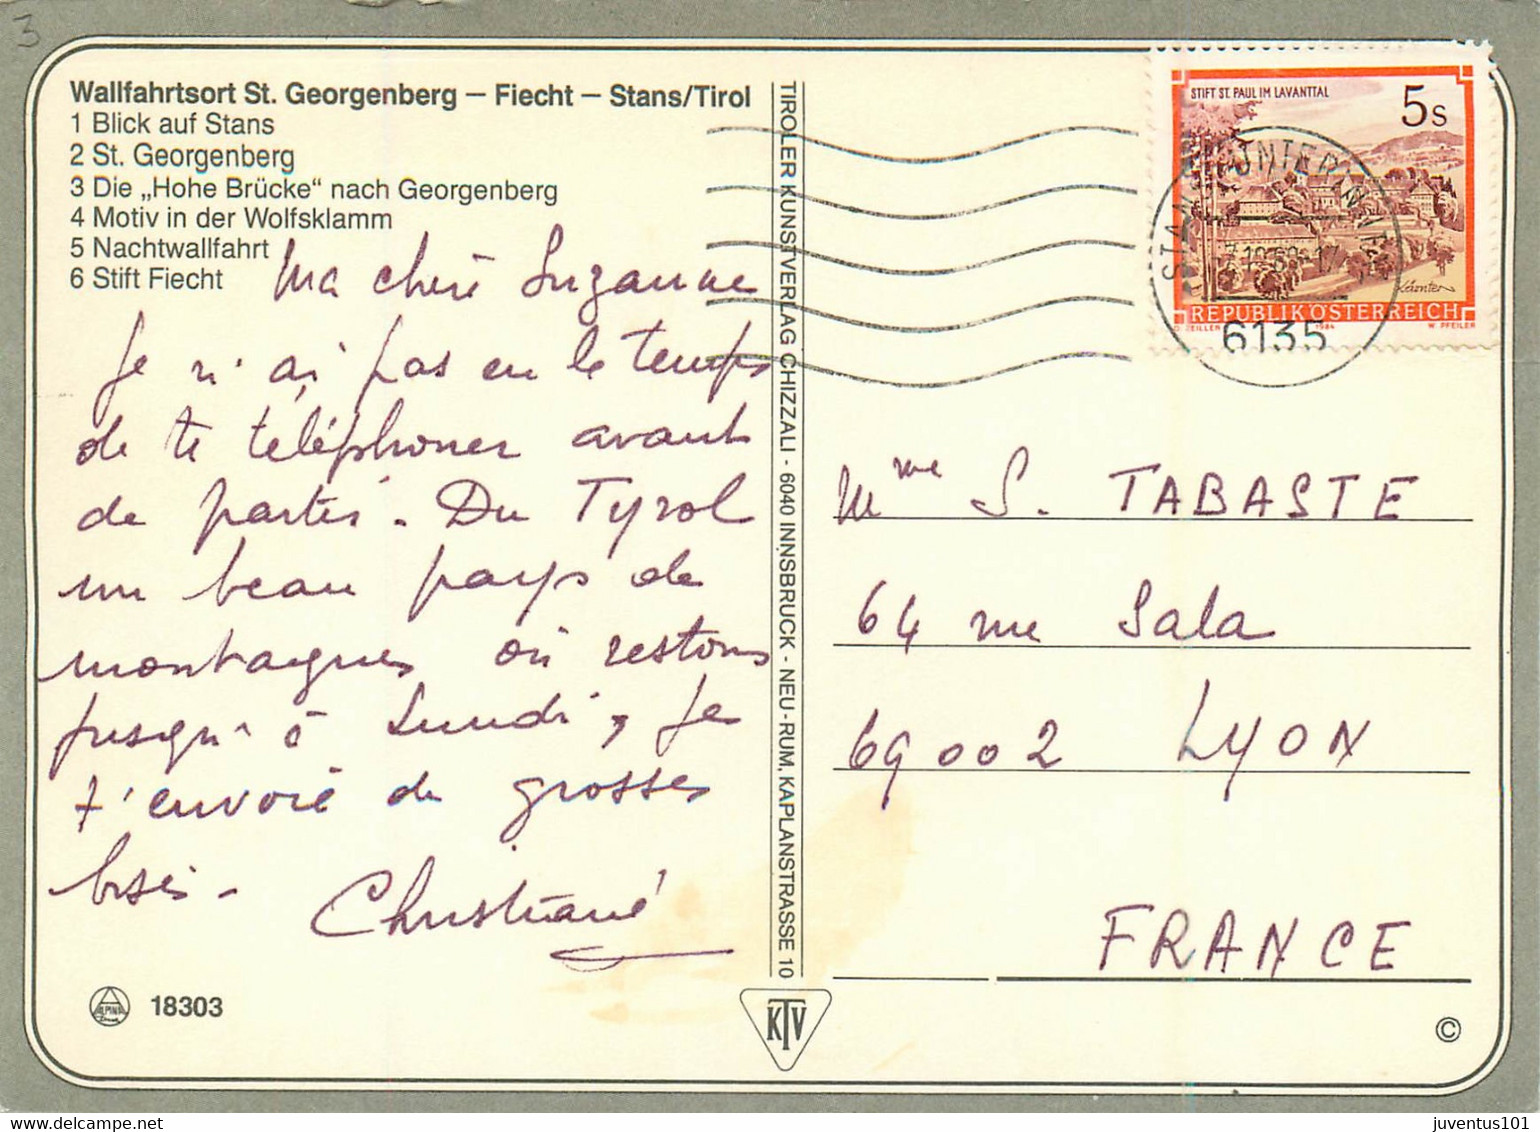 3
Wallfahrtsort St. Georgenberg – Fiecht – Stans/Tirol
1 Blick auf Stans
2 St. Georgenberg
3 Die „Hohe Brücke“ nach Georgenberg
4 Motiv in der Wolfsklamm
5 Nachtwallfahrt
6 Stift Fiecht
Ma chère Suzanne
Je n'ai pas eu le temps
de te téléphoner avant
de partir. Du Tyrol
un beau pays de
montagnes où restons
jusqu'à Lundi, je
t'envoie de grosses
bises -
Christiane
ALPINA
18303
TIROLER KUNSTVERLAG CHIZZALI - 6040 INNSBRUCK - NEU-RUM, KAPLANSTRASSE 10
KTV
STIFT ST. PAUL IM LAVANTTAL
5s
Kärnten
REPUBLIK ÖSTERREICH
O. ZEILLER 1984 W. PFEILER
STANS UNTERINNTAL
6135
Mme S. TABASTE
64 rue Sala
69002 LYON
FRANCE
©
juventus101